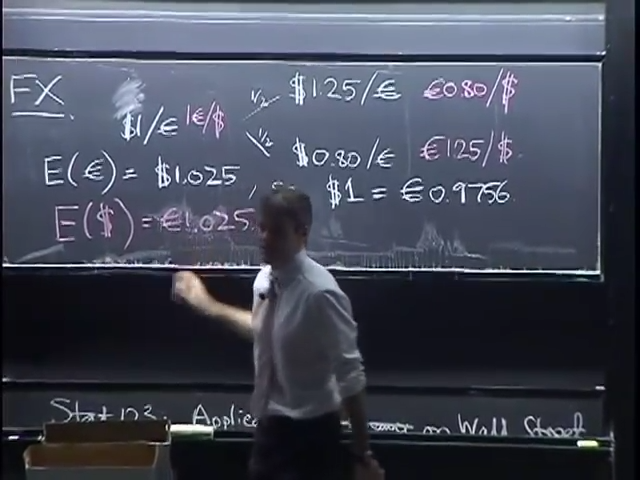 FX
$1/€ 1€/$
1/2 $1.25/€ €0.80/$
1/2 $0.80/€ €1.25/$
E(€) = $1.025, $1 = €0.9756
E($) = €1.025
Stat Applic on Wall Street